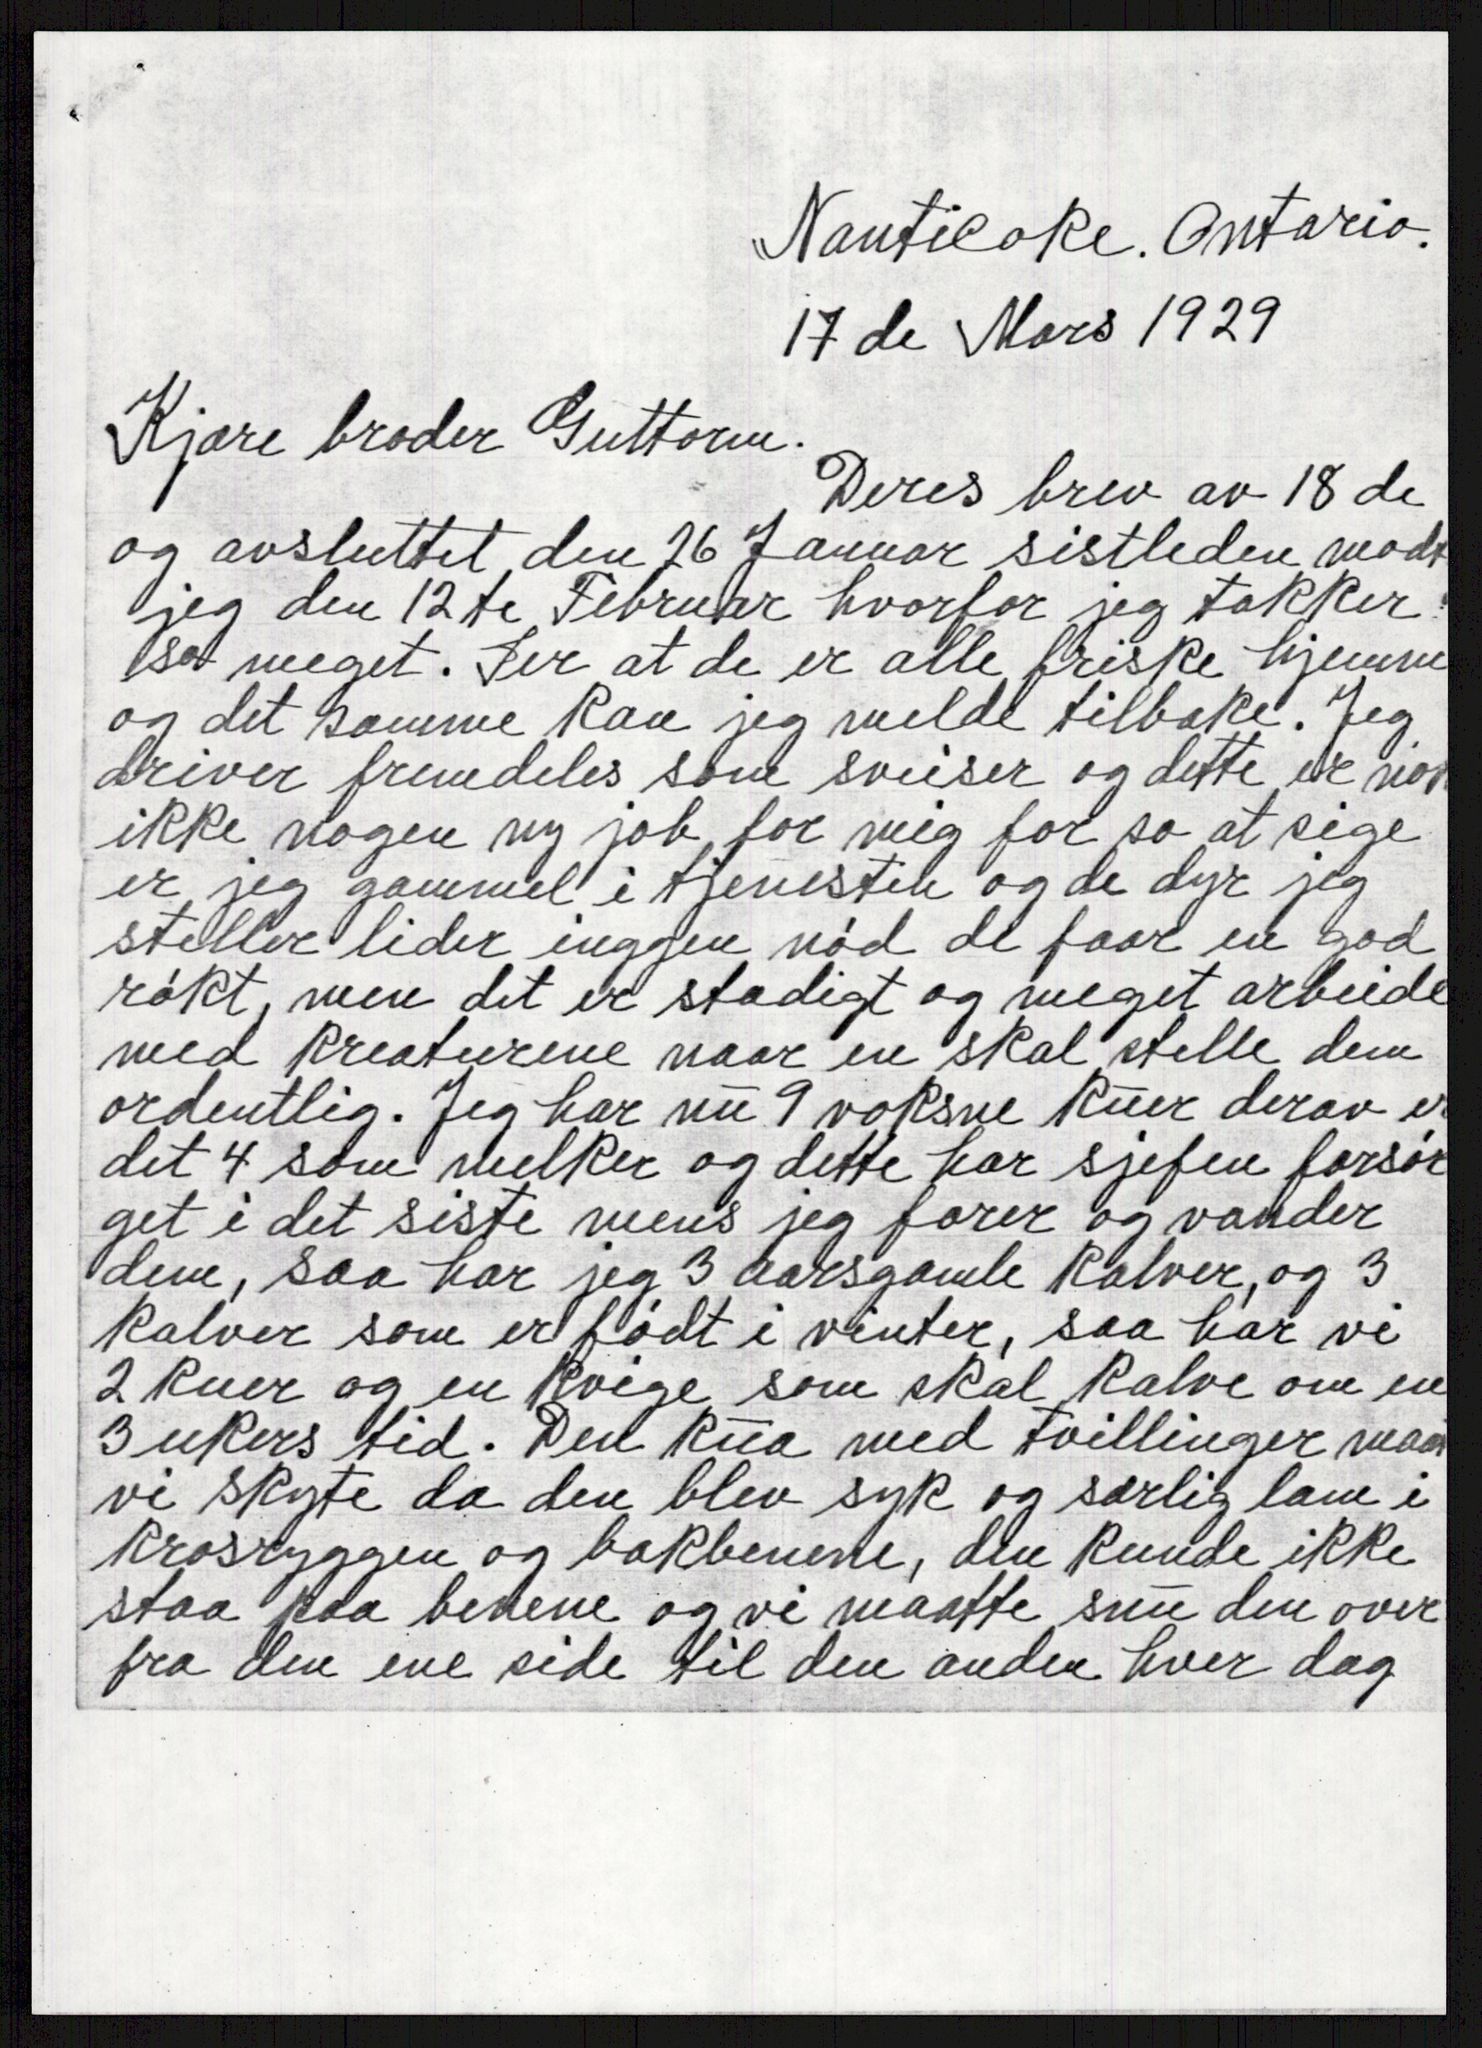 Nanticoke. Ontario.
17 de Mars 1929
Kjære broder Guttorm.
Deres brev av 18 de
og avsluttet den 26 Januar sistleden modt
jeg den 12 te Februar hvorfor jeg takker
sa meget. Ser at de er alle friske hjemme
og det samme kan jeg melde tilbake. Jeg
driver fremdeles som sveiser og dette er nok
ikke nogen ny job for mig for sa at sige
er jeg gammel i tjenesten og de dyr jeg
steller lider inggen nód de faar en god
rókt, men det er stadigt og meget arbeide
med kreaturene naar en skal stelle dem
ordentlig. Jeg har nū 9 voksne kūer derav er
det 4 som melker og dette har sjefen forsór
get i det siste mens jeg forer og vander
dem, saa har jeg 3 aarsgamle kalver, og 3
kalver som er fódt i vinter, saa har vi
2 kuer og en kvige som skal kalve om en
3 ukers tid. Den kūa med tvillinger maat
vi skyte da den blev syk og særlig lam i
krosryggen og bakbenene, den kunde ikke
staa paa benene og vi maatte snū den over
fra den ene side til den anden hver dag